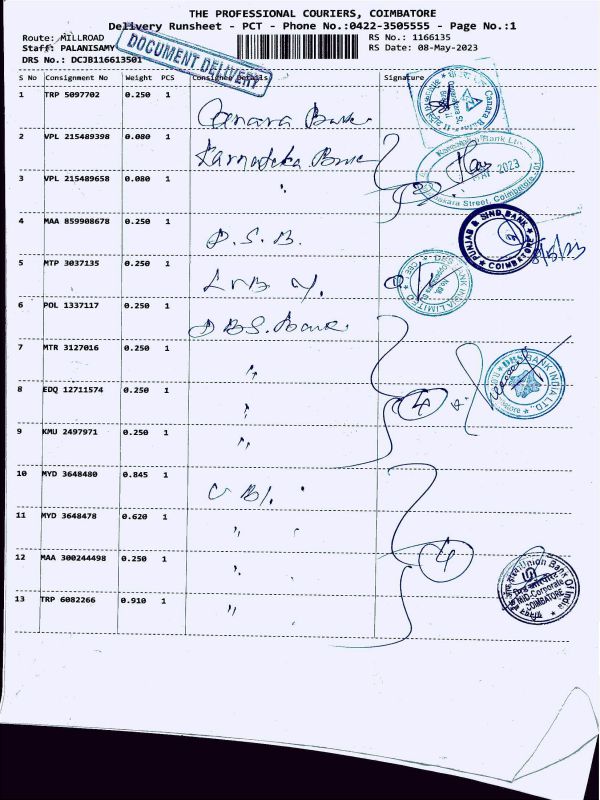 THE PROFESSIONAL COURIERS, COIMBATORE
Delivery Runsheet - PCT - Phone No.:0422-3505555 - Page No.:1
Route: MILLROAD RS No.: 1166135
Staff: PALANISAMY RS Date: 08-May-2023
DRS No.: DCJB116613501
DOCUMENT DELIVERY
S No Consignment No Weight PCS Consignee Details Signature
1 TRP 5097702 0.250 1
Canara Bank
2 VPL 215489398 0.080 1
Karnataka Bank
3 VPL 215489658 0.080 1 " 2
4 MAA 859908678 0.250 1
P.S.B.
5 MTP 3037135 0.250 1
LVB
6 POL 1337117 0.250 1
DBS. Bank
7 MTR 3127016 0.250 1 "
8 EDQ 12711574 0.250 1 " 4
9 KMU 2497971 0.250 1 "
10 MYD 3648480 0.845 1
UBI.
11 MYD 3648478 0.620 1 "
12 MAA 300244498 0.250 1 " 4
13 TRP 6082266 0.910 1 "
Canara Bank
Karnataka Bank Ltd.
MAY 2023
Street, Coimbatore
PUNJAB & SIND BANK
COIMBATORE
8/5/23
DBS BANK INDIA LIMITED
DBS BANK INDIA LTD.
Union Bank Of India
MID-Corporate
COIMBATORE